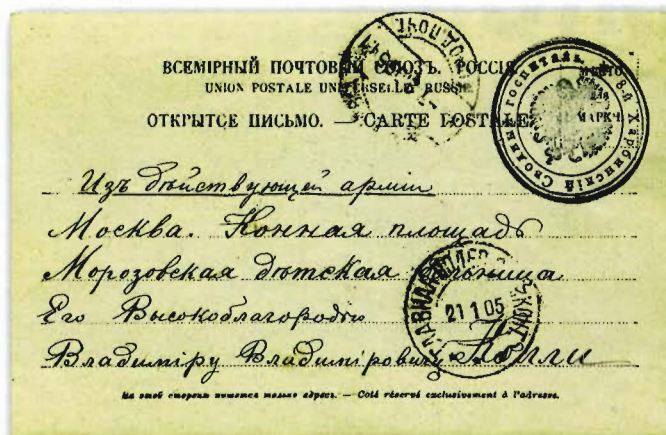 ВСЕМІРНЫЙ ПОЧТОВЫЙ СОЮЗЪ. РОССІЯ
UNION POSTALE UNIVERSELLE RUSSIE
ОТКРЫТОЕ ПИСЬМО. — CARTE POSTALE
МѢСТО
ДЛЯ
МАРКИ
8-й Харбинскій Сводный госпиталь
Изъ дѣйствующей арміи
Москва. Конная площадь
Морозовская дѣтская больница
21 1 05
Его Высокоблагородію
Владиміру Владиміровичу
На этой сторонѣ пишется только адресъ. — Coté réservé exclusivement à l'adresse.